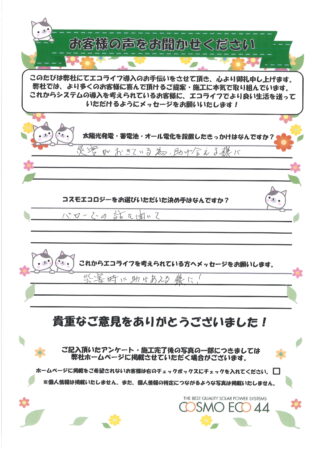 お客様の声をお聞かせください
このたびは弊社にてエコライフ導入のお手伝いをさせて頂き、心より御礼申し上げます。
弊社では、より多くのお客様に喜んで頂けるご提案・施工に本気で取り組んでいます。
これからシステムの導入を考えられているお客様に、エコライフでより良い生活を送って
いただけるようにメッセージをお願いします！
太陽光発電・蓄電池・オール電化を設置したきっかけはなんですか？
災害がおきている為、助け合える様に
コスモエコロジーをお選びいただいた決め手はなんですか？
の話を聞いて
これからエコライフを考えられている方へメッセージをお願いします。
災害時に助けあえる様に！
貴重なご意見をありがとうございました！
ご記入頂いたアンケート・施工完了後の写真の一部につきましては
弊社ホームページに掲載させていただく場合がございます。
ホームページに掲載をご希望されないお客様は右のチェックボックスにチェックを入れてください。
※個人情報は掲載いたしません。また、個人情報の特定につながるような写真は掲載いたしません。
THE BEST QUALITY SOLAR POWER SYSTEMS
COSMO ECO 44